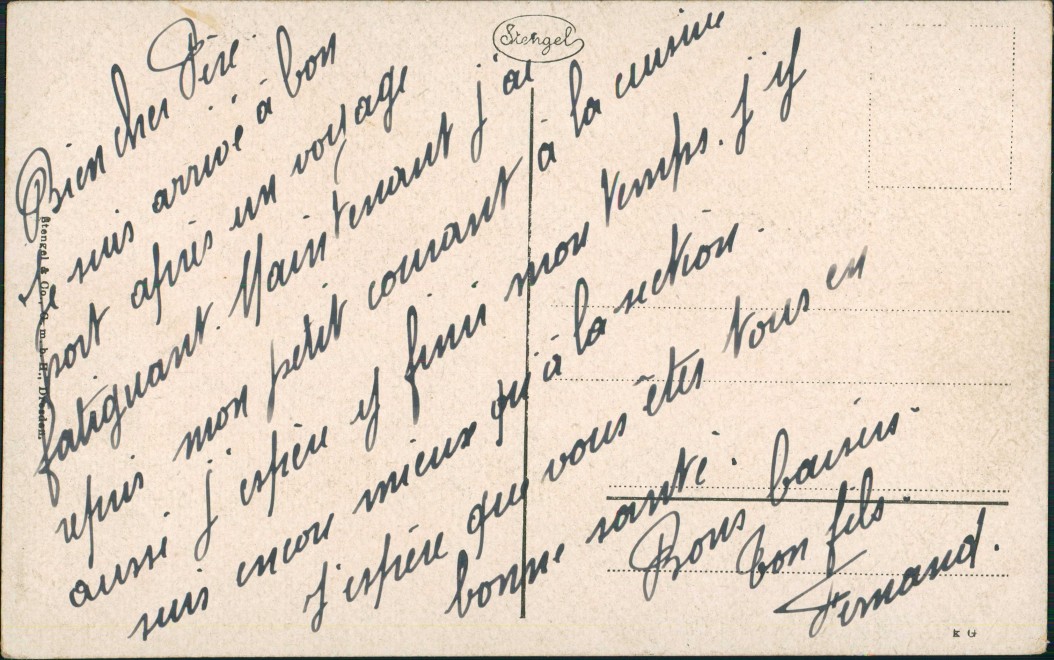 Stengel
Bien cher Père
Je suis arrivé à bon
port après un voyage
fatiguant. Maintenant j'ai
repris mon petit courant à la cuisine
aussi j'espère y finir mon temps. J'y
suis encore mieux qu'à la section.
J'espère que vous êtes tous en
bonne santé.
Bons baisers.
Ton fils
Fernand.
Stengel & Co., G. m. b. H., Dresden.
K G